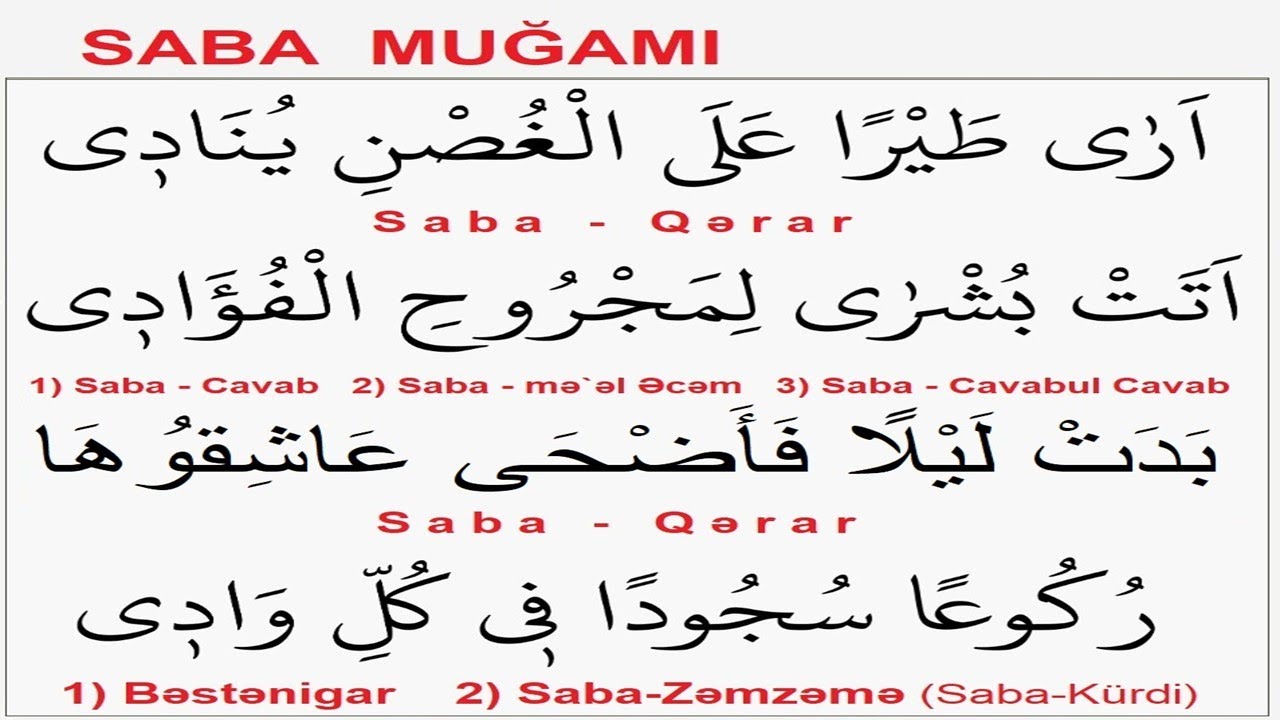 SABA MUĞAMI
اَرٰى طَيْرًا عَلَى الْغُصْنِ يُنَادٖى
Saba - Qərar
اَتَتْ بُشْرٰى لِمَجْرُوحِ الْفُؤَادٖى
1) Saba - Cavab 2) Saba - mə`əl Əcəm 3) Saba - Cavabul Cavab
بَدَتْ لَيْلًا فَأَضْحَى عَاشِقُوهَا
Saba - Qərar
رُكُوعًا سُجُودًا فٖى كُلِّ وَادٖى
1) Bəstənigar 2) Saba-Zəmzəmə (Saba-Kürdi)